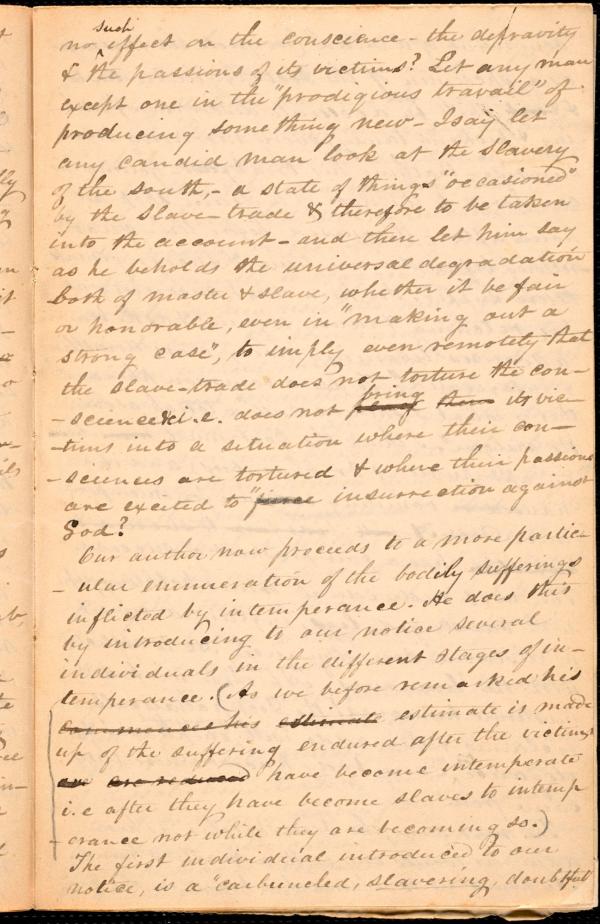 such
no effect on the conscience - the depravity
& the passions of its victims? Let any man
except one in the "prodigious travail" of
producing something new - I say let
any candid man look at the slavery
of the south, - a state of things "occasioned"
by the slave-trade & therefore to be taken
into the account - and then let him say
as he beholds the universal degradation
both of master & slave, whether it be fair
or honorable, even in "making out a
strong case", to imply even remotely that
the slave-trade does not torture the con-
bring
-science & i.e. does not them its vic-
-tims into a situation where their con-
-sciences are tortured & where their passions
are excited to "fierce insurrection against
God?
Our author now proceeds to a more partic-
-ular enumeration of the bodily sufferings
inflicted by intemperance. He does this
by introducing to our notice several
individuals in the different stages of in-
temperance. (As we before remarked his
commences his estimate estimate is made
up of the suffering endured after the victims
are reduced have become intemperate
i.e after they have become slaves to intemp
-erance not while they are becoming so.)
The first individual introduced to our
notice, is a "carbuncled, slavering, doubtful